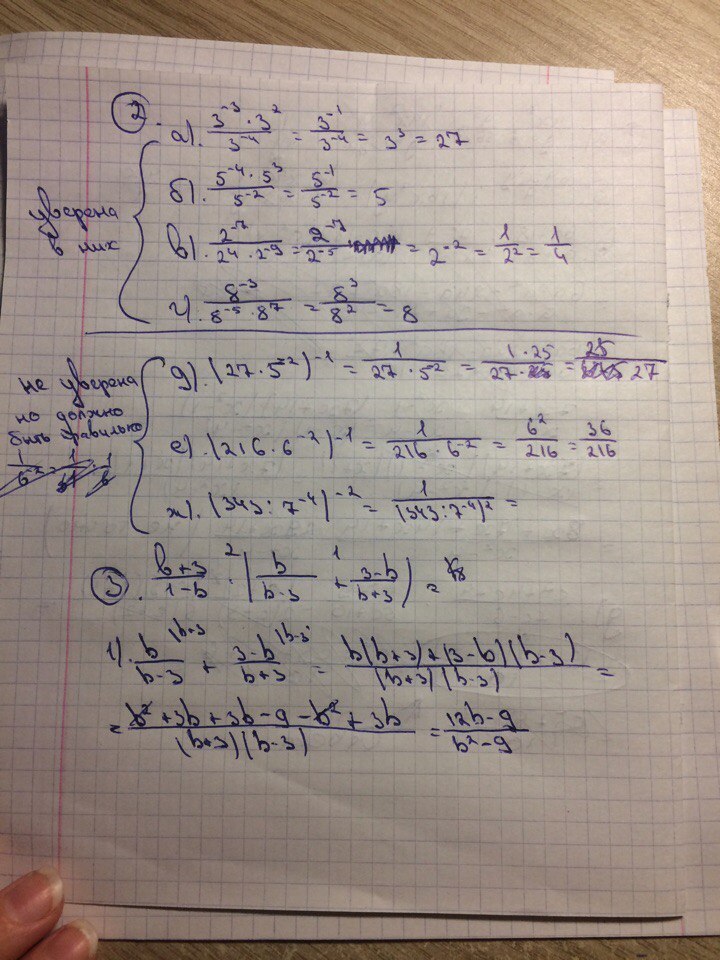 2.
а). (3^-3 · 3^2)/(3^-4) = (3^-1)/(3^-4) = 3^3 = 27
уверена в них
б). (5^-4 · 5^3)/(5^-2) = (5^-1)/(5^-2) = 5
в). (2^-7)/(2^4 · 2^-9) = (2^-7)/(2^-5) = 2^-2 = 1/2^2 = 1/4
г). (8^-3)/(8^-5 · 8^7) = (8^3)/(8^2) = 8
не уверена
но должно
быть правильно
д). (27 · 5^-2)^-1 = 1/(27 · 5^-2) = (1 · 25)/27 = 25/27
е). (216 · 6^-2)^-1 = 1/(216 · 6^-2) = 6^2/216 = 36/216
ж). (343 : 7^-4)^-2 = 1/(343 : 7^-4)^2 =
3. (b+3)/(1-b) ·^2 (b/(b-3) +^1 (3-b)/(b+3)) =
1). b/(b-3) |b+3 + (3-b)/(b+3) |b-3 = (b(b+3)+(3-b)(b-3))/((b+3)(b-3)) =
= (b^2 + 3b + 3b - 9 - b^2 + 3b)/((b+3)(b-3)) = (12b-9)/(b^2-9)